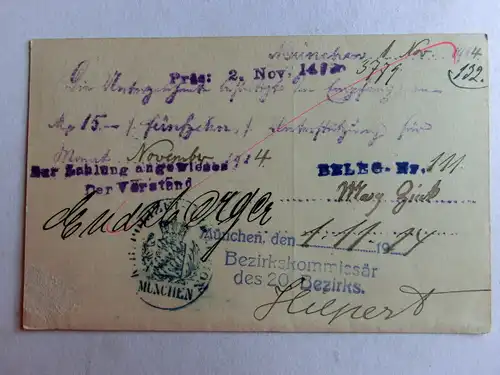 München 1 Nov. 1914
Präs: 2. Nov. 1914
3779
132.
Die Unterzeichnete bestätigt den Empfang von
M 15 – /: fünfzehn :/ Unterstützung für
Monat November 1914.
Zur Zahlung angewiesen
Der Vorstand
BELEG-Nr. 111
München, den
Bezirkskommissär
des 20. Bezirks.
MÜNCHEN
Hilpert